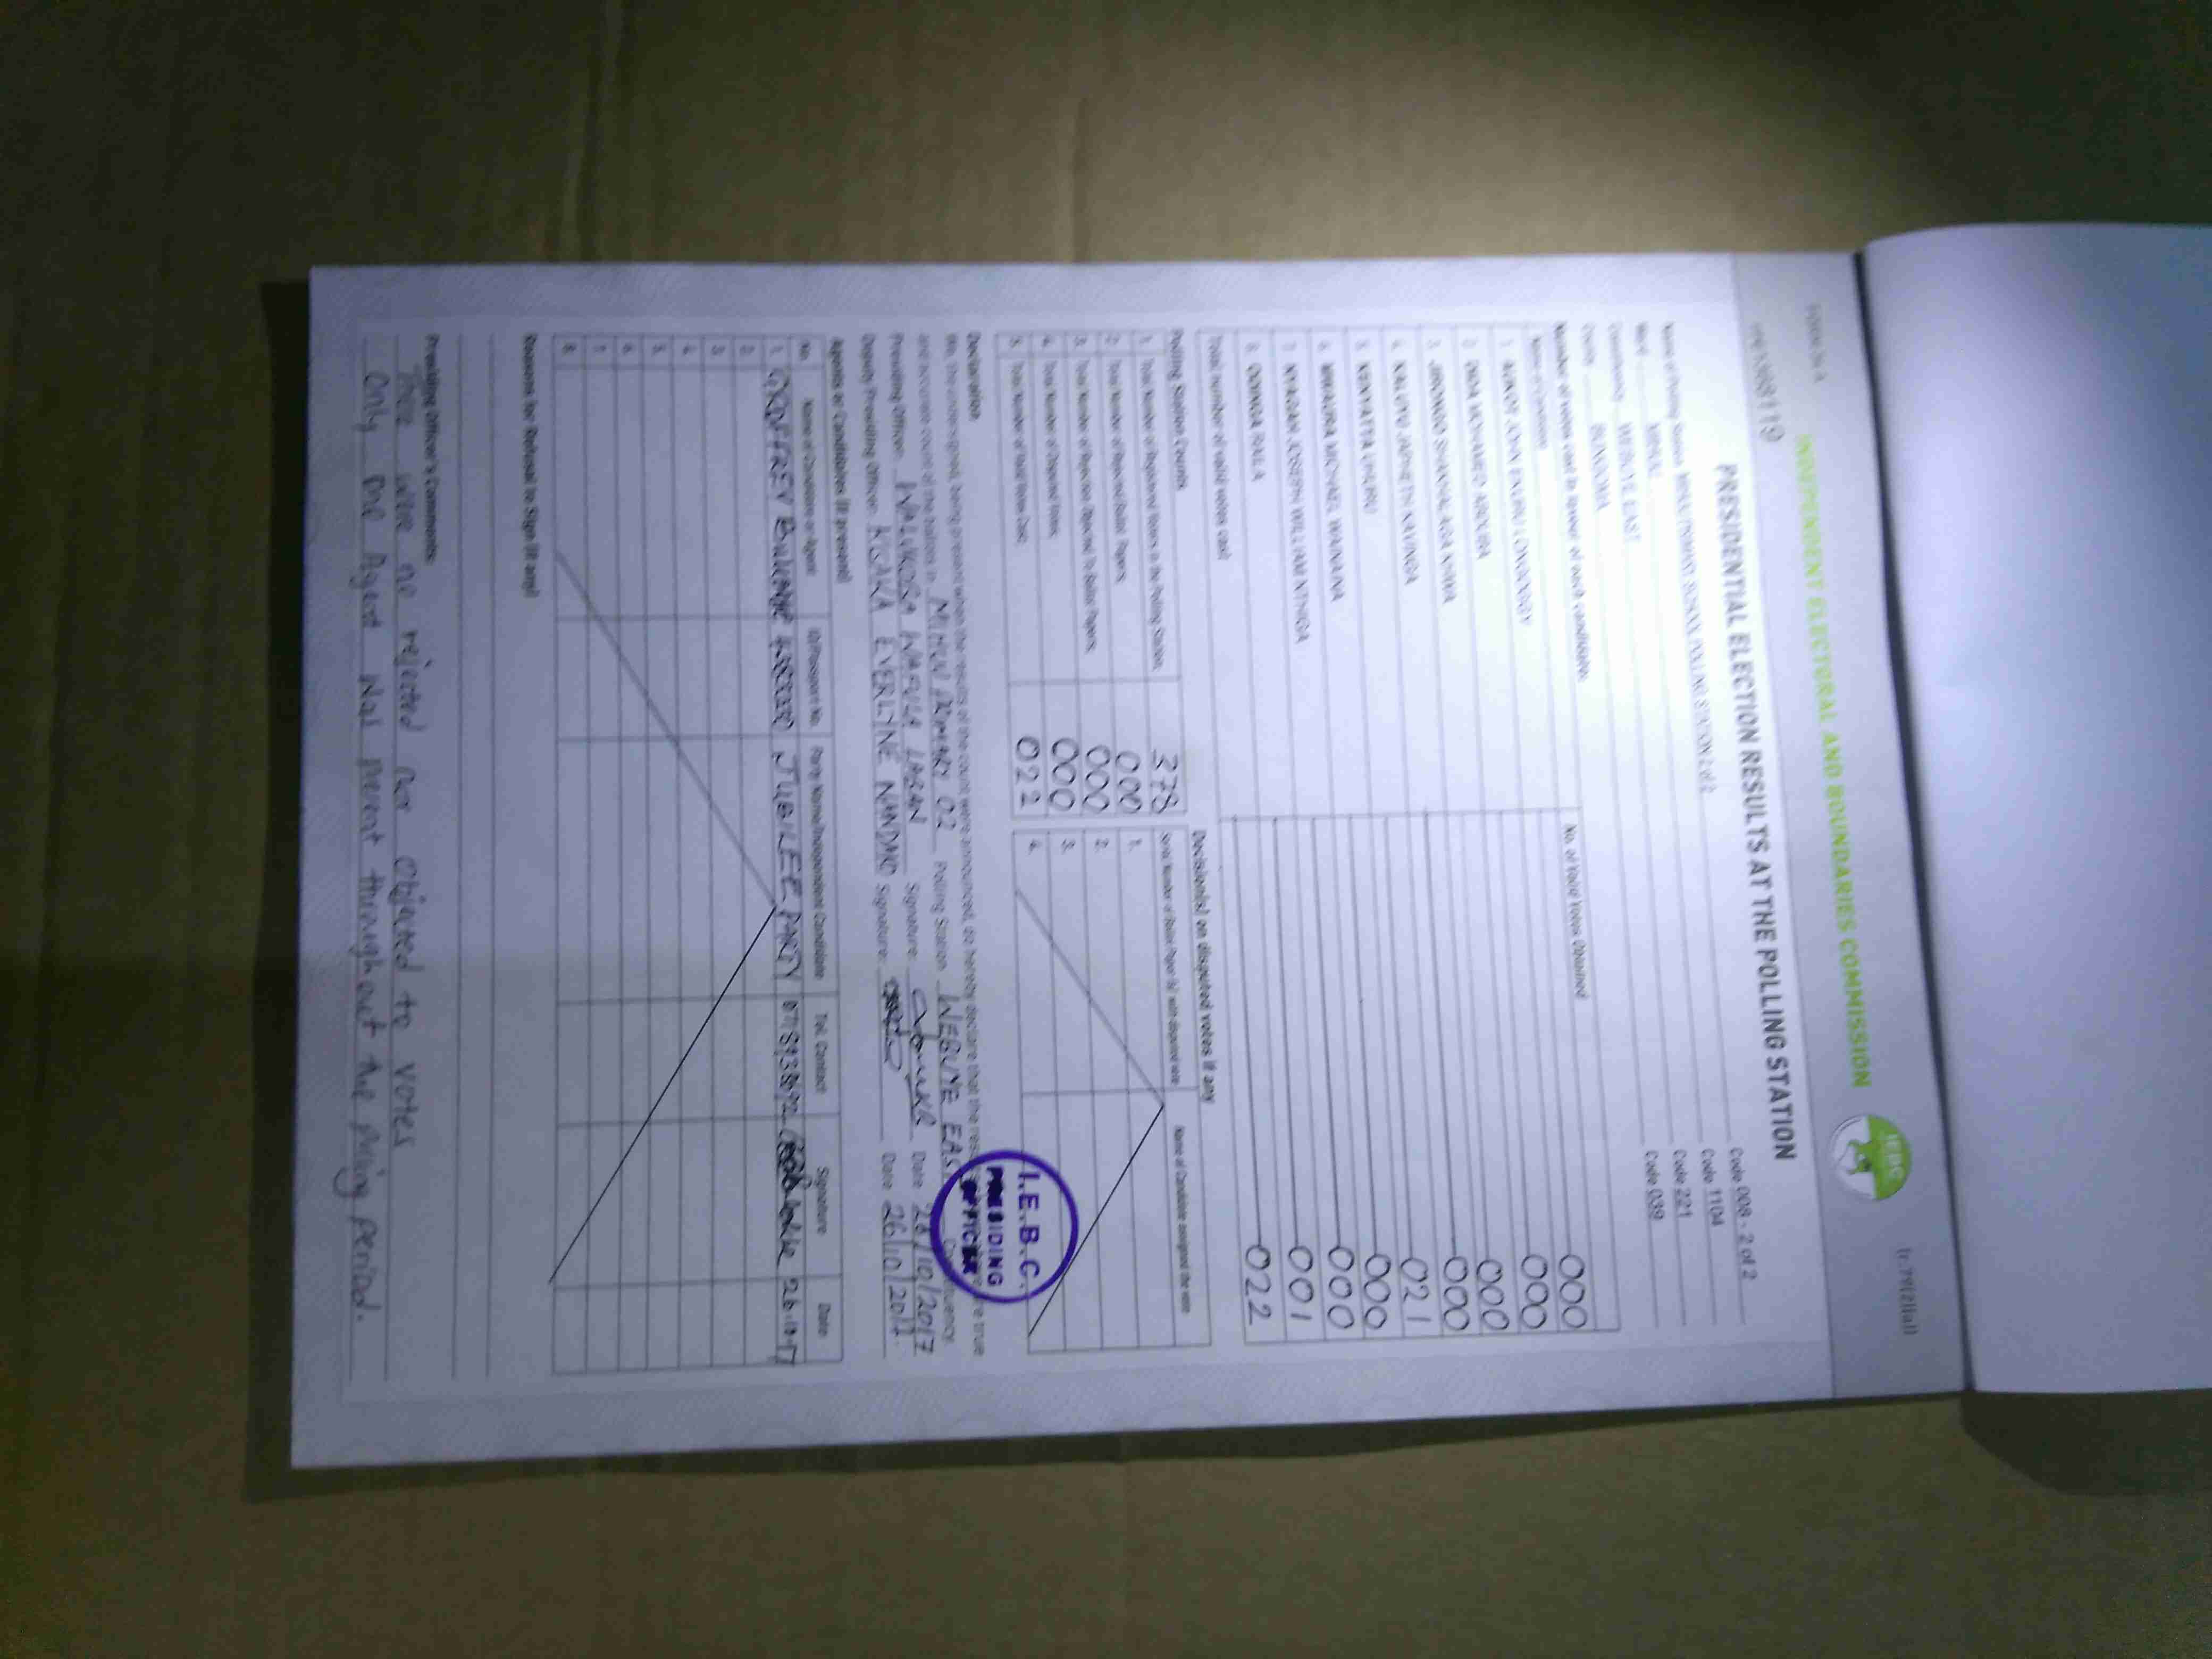 FORM 34 A
INDEPENDENT ELECTORAL AND BOUNDARIES COMMISSION
IEBC
(r.79(2)(a))
PRESIDENTIAL ELECTION RESULTS AT THE POLLING STATION
Name of Polling Station PRIMARY SCHOOL POLLING STATION 2 of 2 Code 008 - 2 of 2
Ward MIHUU Code 1104
Constituency WEBUYE EAST Code 221
County BUNGOMA Code 039
Number of votes cast in favour of each candidate
Name of Candidate No. of Valid Votes Obtained
1. AUKOT JOHN EKURU LONGOGGY 000
2. DIDA MOHAMED ABDUBA 000
3. JIRONGO SHAKHALAGA KHWA 000
4. KALUYU JAPHETH KAVINGA 000
5. KENYATTA UHURU 021
6. MWAURA MICHAEL WAINAINA 000
7. NYAGAH JOSEPH WILLIAM NTHIGA 000
8. ODINGA RAILA 001
Total number of valid votes cast 022
Polling Station Counts
1. Total Number of Registered Voters in the Polling Station 378
2. Total Number of Rejected Ballot Papers 000
3. Total Number of Rejection Objected To Ballot Papers 000
4. Total Number of Disputed Votes 000
5. Total Number of Valid Votes Cast 022
Decision(s) on disputed votes if any
Serial Number of Ballot Paper (s) with disputed vote Name of Candidate assigned the vote
1.
2.
3.
4.
Declaration
We, the undersigned, being present when the results of the count were announced, do hereby declare that the true
and accurate count of the ballots in 02 Polling Station WEBUYE EAST
Presiding Officer: WALUKOBA WAFULA LABAN Signature: Date: 26/10/2017
Deputy Presiding Officer: KISAKA EVERLYNE Signature: Date: 26/10/2017
I.E.B.C.
PRESIDING
OFFICER
Agents or Candidates (if present)
No. Name of Candidate or Agent ID/Passport No. Party Name/Independent Candidate Tel. Contact Signature Date
1. JUBILEE PARTY 26.10.17
2.
3.
4.
5.
6.
7.
8.
Reasons for Refusal to Sign (if any)
Presiding Officer's Comments:
There were no rejected nor objected to votes
Only one Agent was present throughout the polling period.